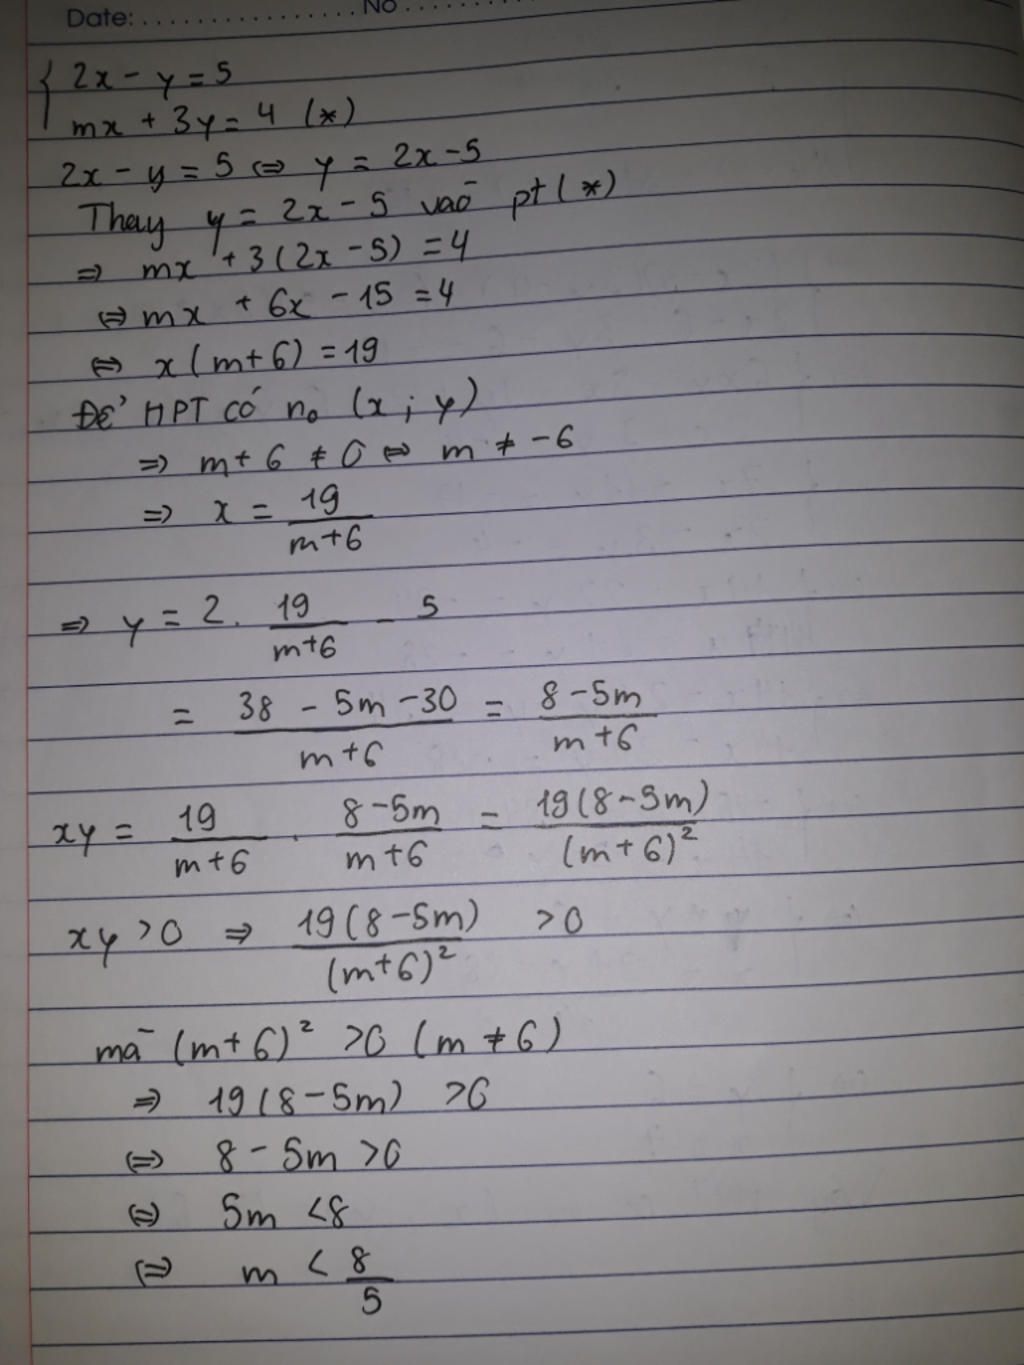 Date: ................ No .........
{ 2x - y = 5
mx + 3y = 4 (*)
2x - y = 5 ⇔ y = 2x - 5
Thay y = 2x - 5 vào pt (*)
⇒ mx + 3(2x - 5) = 4
⇔ mx + 6x - 15 = 4
⇔ x(m+6) = 19
Để HPT có n₀ (x ; y)
⇒ m + 6 ≠ 0 ⇔ m ≠ -6
⇒ x = 19/(m+6)
⇒ y = 2. 19/(m+6) - 5
= (38 - 5m - 30)/(m+6) = (8 - 5m)/(m+6)
xy = 19/(m+6) . (8 - 5m)/(m+6) = 19(8 - 5m)/(m+6)²
xy > 0 ⇒ 19(8 - 5m)/(m+6)² > 0
mà (m+6)² > 0 (m ≠ 6)
⇒ 19(8 - 5m) > 0
⇔ 8 - 5m > 0
⇔ 5m < 8
⇔ m < 8/5